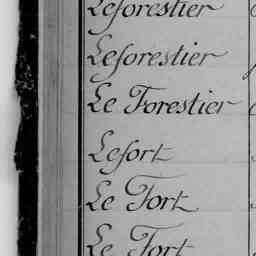 Leforestier
Leforestier
Le Forestier
Lefort
Le Fort
Le Fort